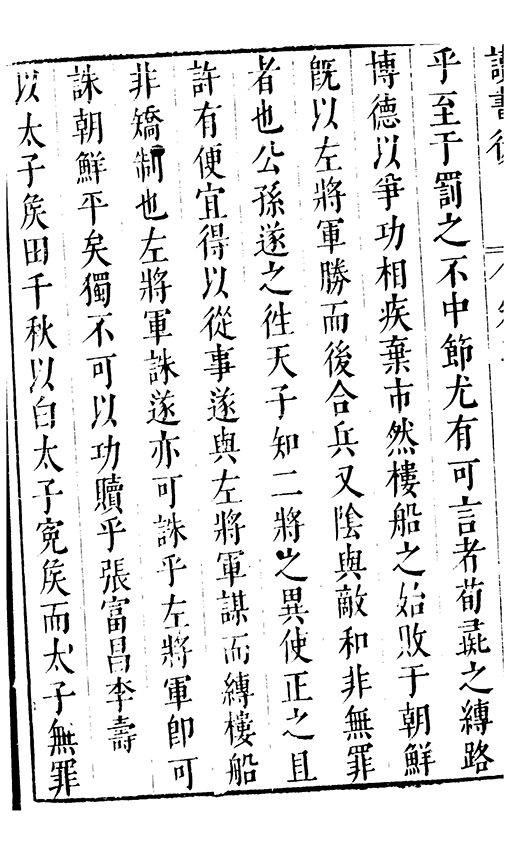 讀書後
乎至于罰之不中節尤有可言者荀彘之縛路
博德以爭功相疾棄市然樓船之始敗于朝鮮
旣以左將軍勝而後合兵又陰與敵和非無罪
者也公孫遂之徃天子知二將之異使正之且
許有便宜得以從事遂與左將軍謀而縛樓船
非矯制也左將軍誅遂亦可誅乎左將軍卽可
誅朝鮮平矣獨不可以功贖乎張富昌李壽
以太子矦田千秋以白太子寃矦而太子無罪